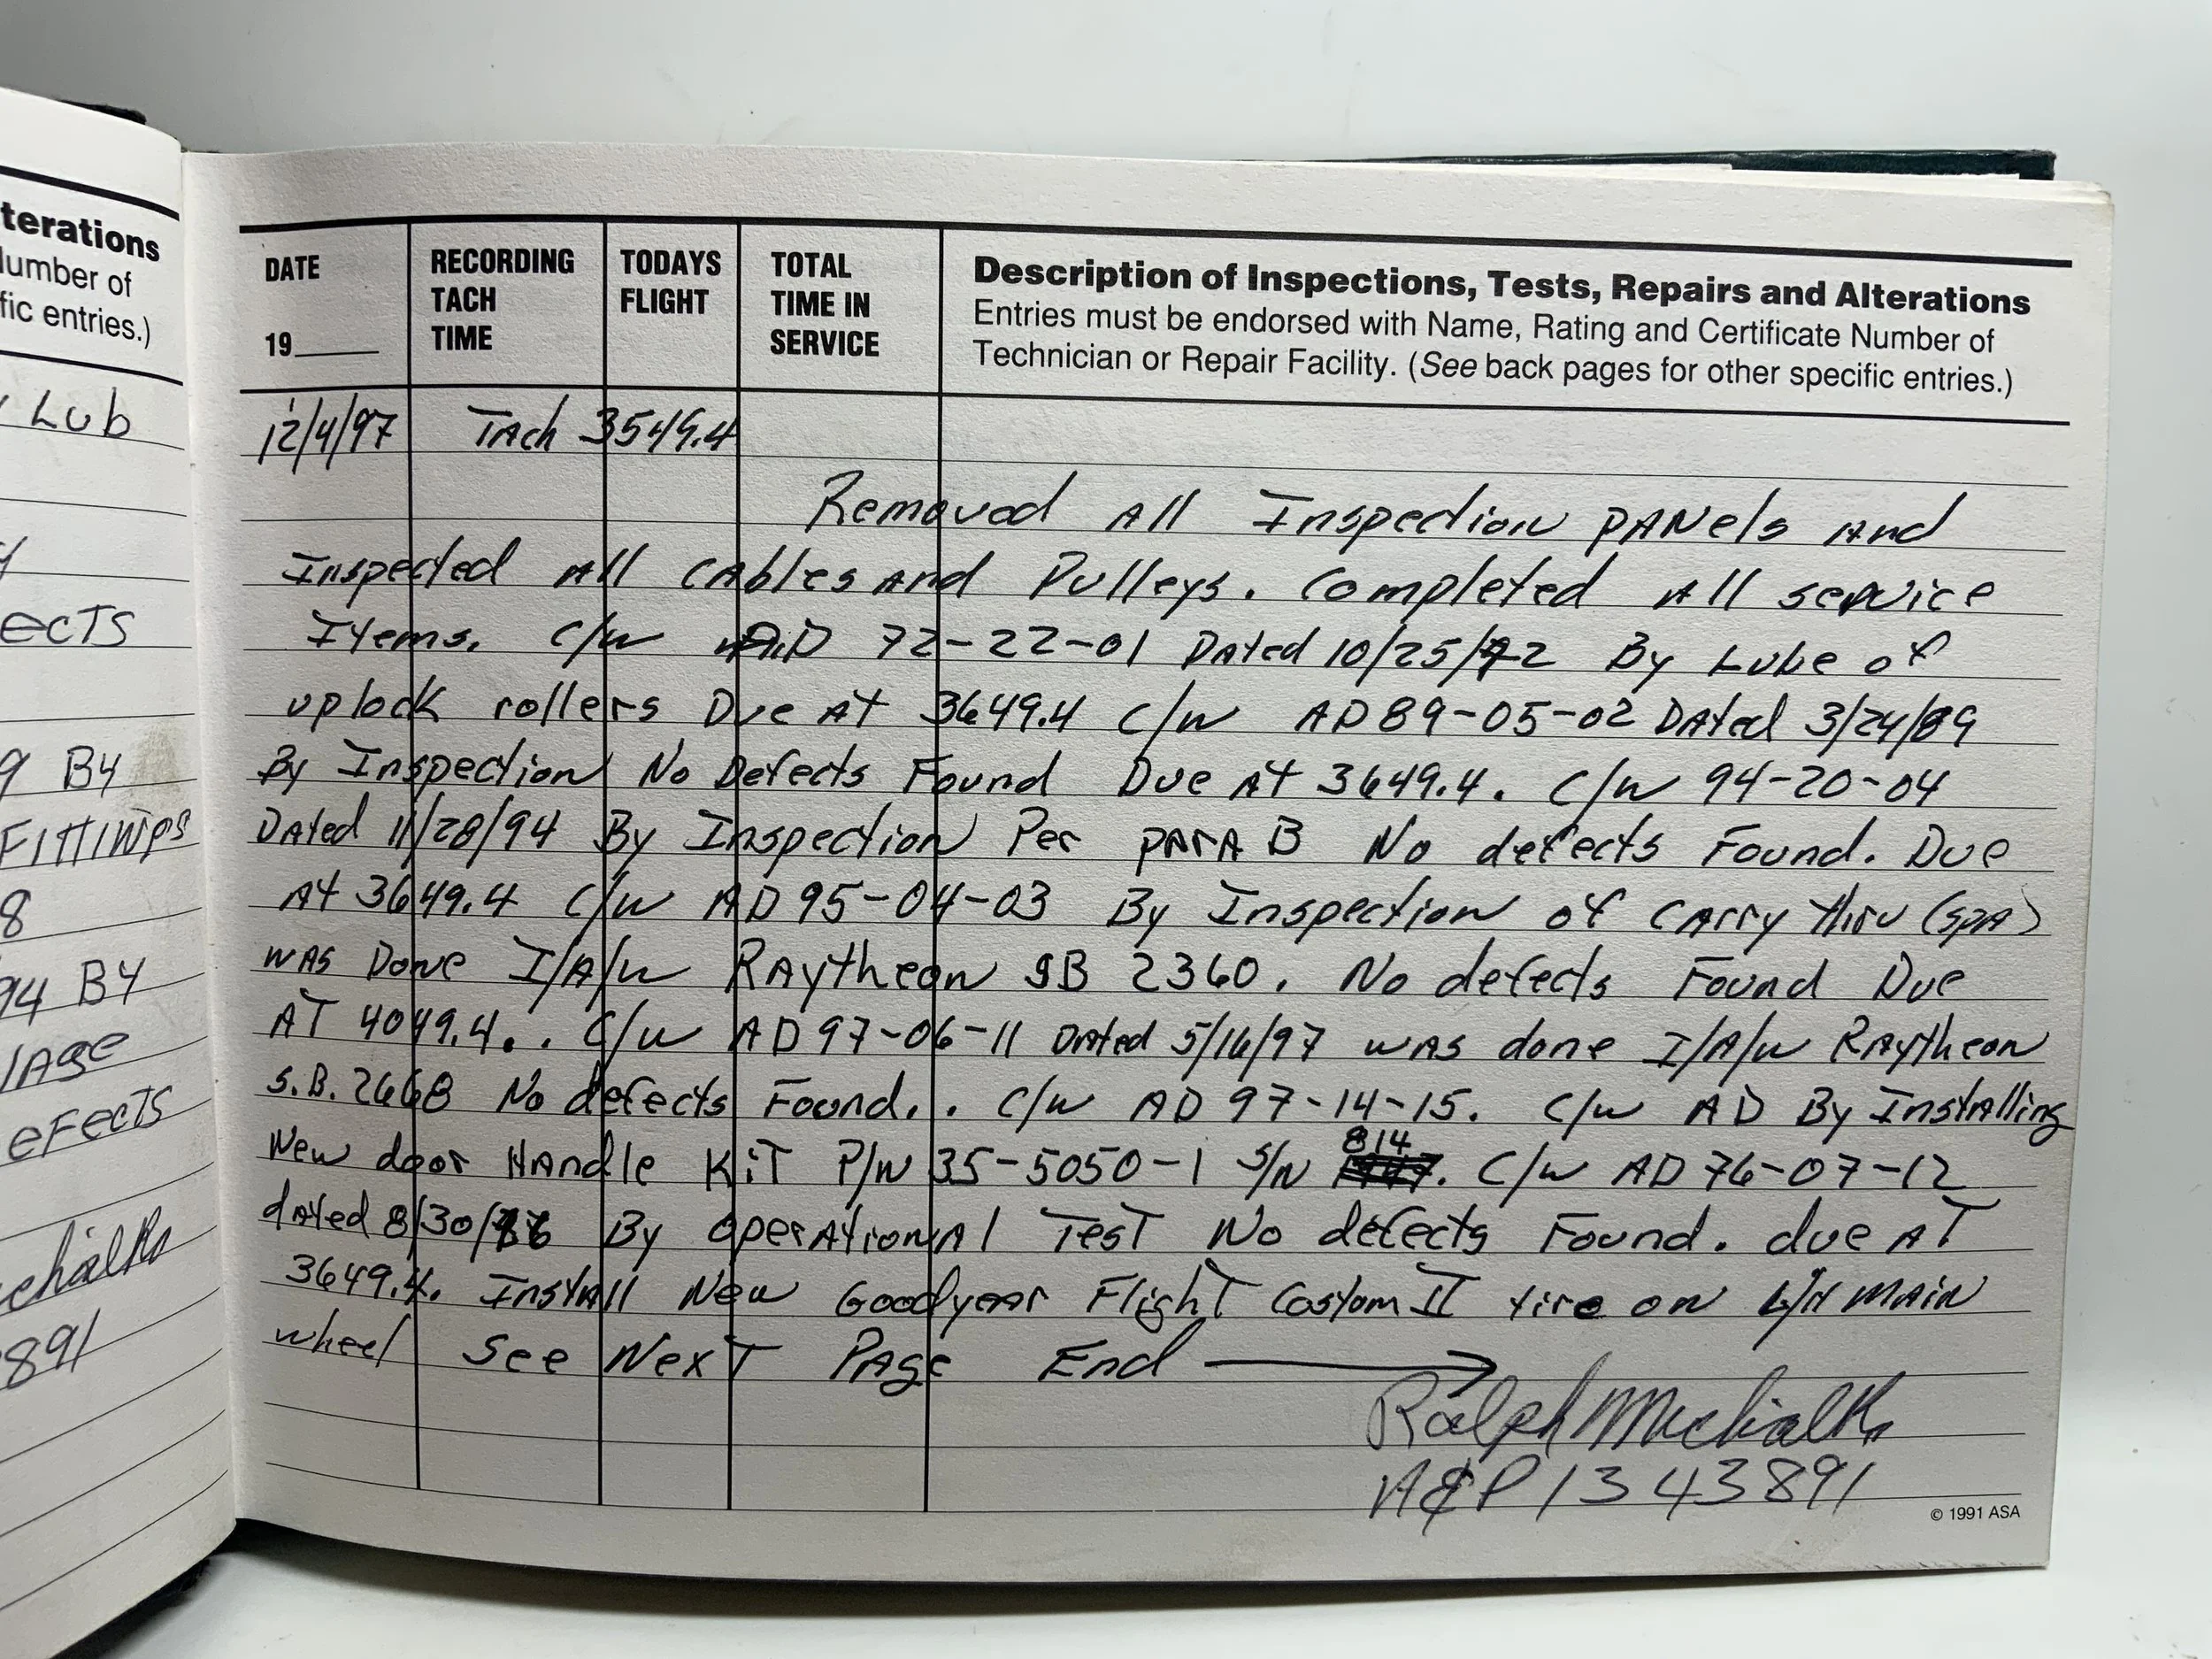 terations
Number of
fic entries.)
Lub
ects
9 By
Fittings
8
94 By
lage
efects
891
DATE
19____
RECORDING
TACH
TIME
TODAYS
FLIGHT
TOTAL
TIME IN
SERVICE
Description of Inspections, Tests, Repairs and Alterations
Entries must be endorsed with Name, Rating and Certificate Number of
Technician or Repair Facility. (See back pages for other specific entries.)
12/4/97 Tach 3549.4
Removed All Inspection PANels And
Inspected All CAbles And Pulleys. Completed All service
Items. C/W A.D 72-22-01 Dated 10/25/72 By Lube of
uplock rollers Due At 3649.4 C/W AD 89-05-02 DAted 3/24/89
By Inspection No Defects Found Due At 3649.4. C/W 94-20-04
DAted 11/28/94 By Inspection Per PArA B No defects Found. Due
At 3649.4 C/W AD 95-04-03 By Inspection of CArry thru (SpA)
WAS Done I/A/W RAytheon SB 2360. No defects Found Due
AT 4049.4.. C/W AD 97-06-11 DAted 5/16/97 WAS done I/A/W RAytheon
S.B. 2668 No defects Found.. C/W AD 97-14-15. C/W AD By InstAlling
New door HAndle KiT P/N 35-5050-1 S/N 814. C/W AD 76-07-12
dAted 8/30/76 By OperAtionAl TesT No defects Found. due AT
3649.4. InstAll New Goodyear FlighT Custom II tire on L/H MAiN
wheel See NexT PAge End →
Ralph Michalk
A&P 1343891
© 1991 ASA